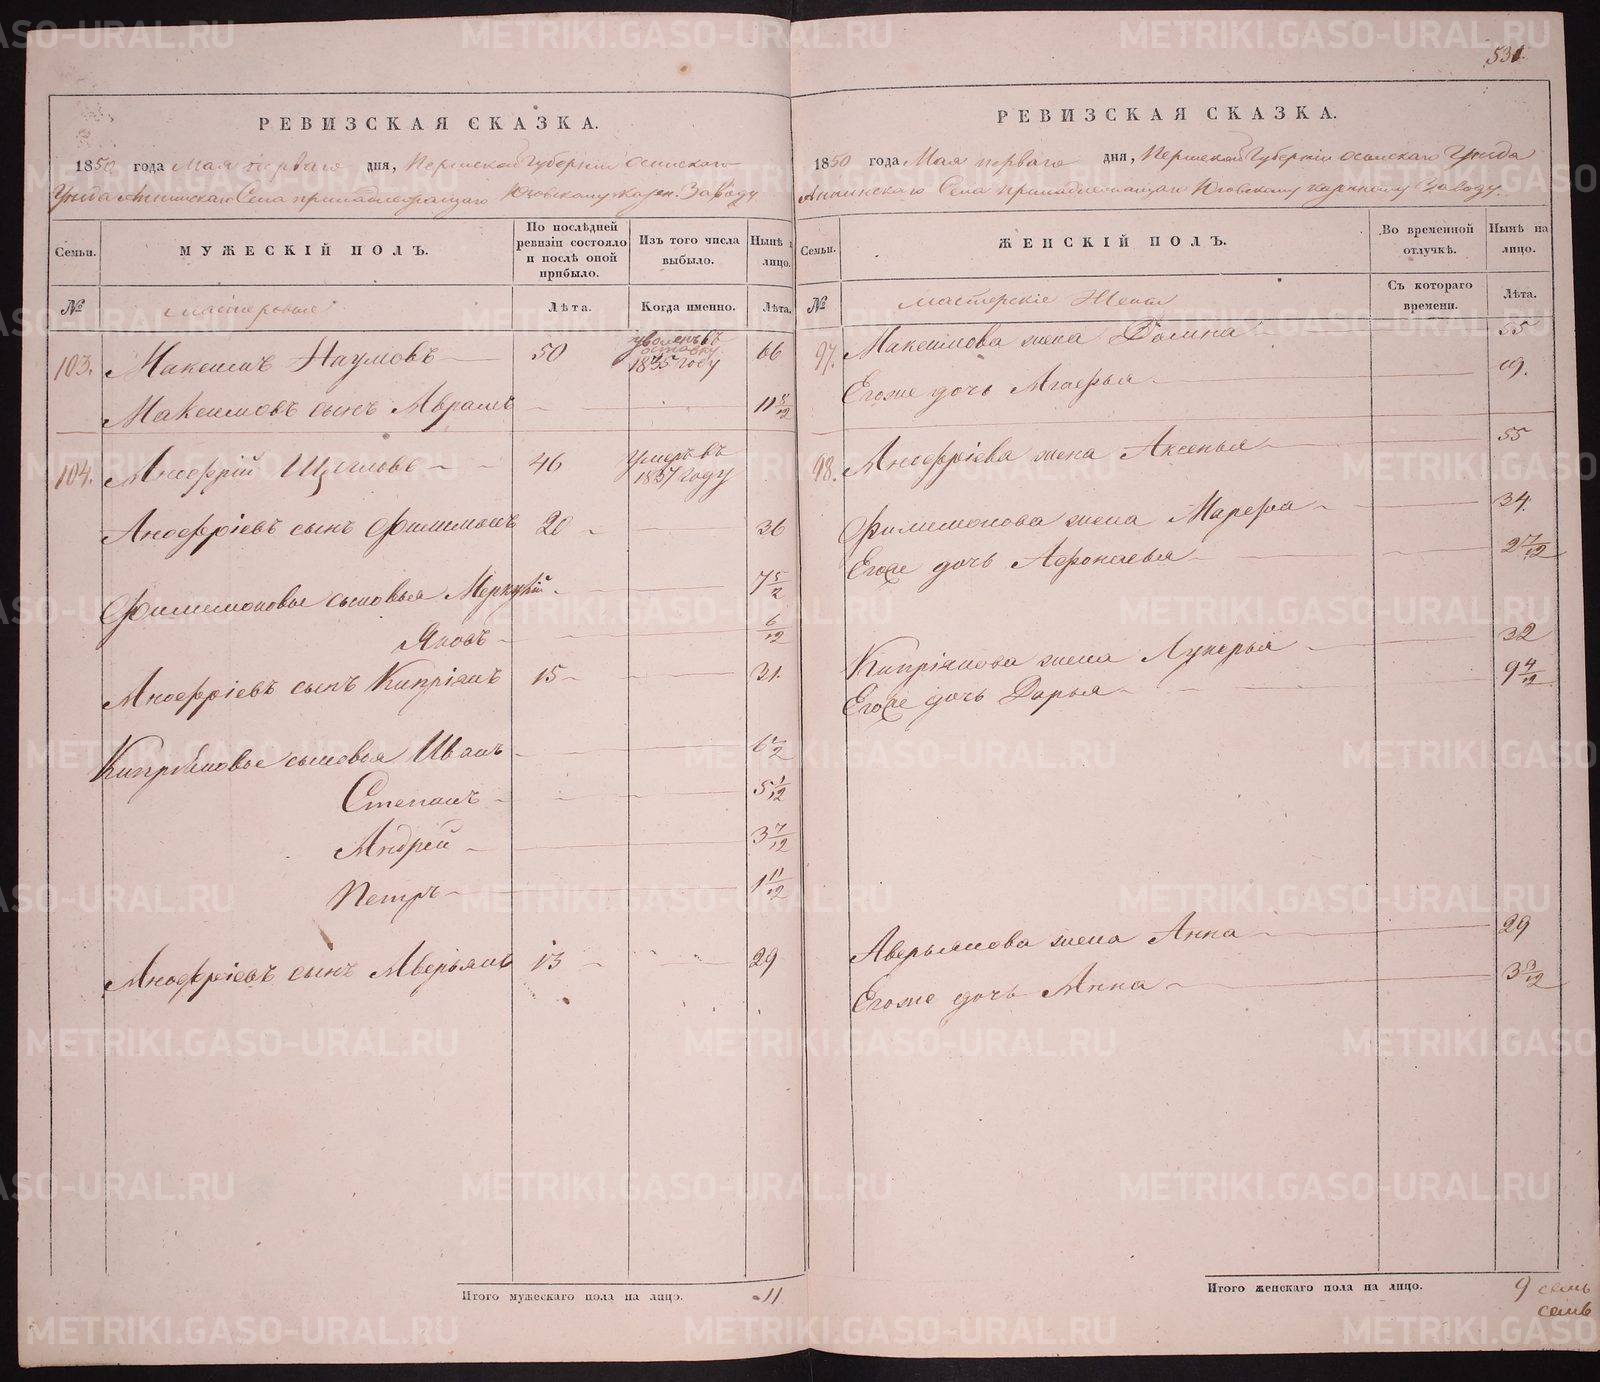 531
РЕВИЗСКАЯ СКАЗКА.
1850 года Мая перваго дня, Пермской Губернии Осинскаго
Уезда Аннинскаго Села принадлежащаго Юговскому казен. Заводу
Семьи.
МУЖЕСКІЙ ПОЛЪ.
По послѣдней ревизіи состояло и послѣ оной прибыло.
Изъ того числа выбыло.
Нынѣ на лицо.
№
мастеровые
Лѣта.
Когда именно.
Лѣта.
103. Максимъ Наумовъ 50 уволенъ въ отставку 1835 году 66
Максимовъ сынъ Аврамъ 11 8/12
104. Аноѳрій Щегловъ 46 умеръ въ 1837 году
Аноѳріевъ сынъ Филимонъ 20 36
Филимоновы сыновья Меркурій 7 5/12
Яковъ 6/12
Аноѳріевъ сынъ Кипріянъ 15 31.
Кипріяновы сыновья Иванъ 6 1/2
Степанъ 5 1/12
Андрей 3 7/12
Петръ 1 11/12
Аноѳріевъ сынъ Аверьянъ 13 29
Итого мужескаго пола на лицо. 11
РЕВИЗСКАЯ СКАЗКА.
1850 года Мая перваго дня, Пермской Губерніи Осинскаго Уезда
Аннинскаго Села принадлежащаго Юговскому казенному Заводу.
Семьи.
ЖЕНСКІЙ ПОЛЪ.
Во временной отлучкѣ.
Нынѣ на лицо.
№
мастерскіе Жены
Съ котораго времени.
Лѣта.
97. Максимова жена Домна 55
Егоже дочь Агафья 19.
98. Аноѳріева жена Аксенья 55
Филимонова жена Марѳа 34.
Егоже дочь Афонасья 2 7/12
Кипріянова жена Лукерья 32
Егоже дочь Дарья 9 4/12
Аверьянова жена Анна 29
Егоже дочь Анна 3 3/12
Итого женскаго пола на лицо. 9 семь
семь
METRIKI.GASO-URAL.RU